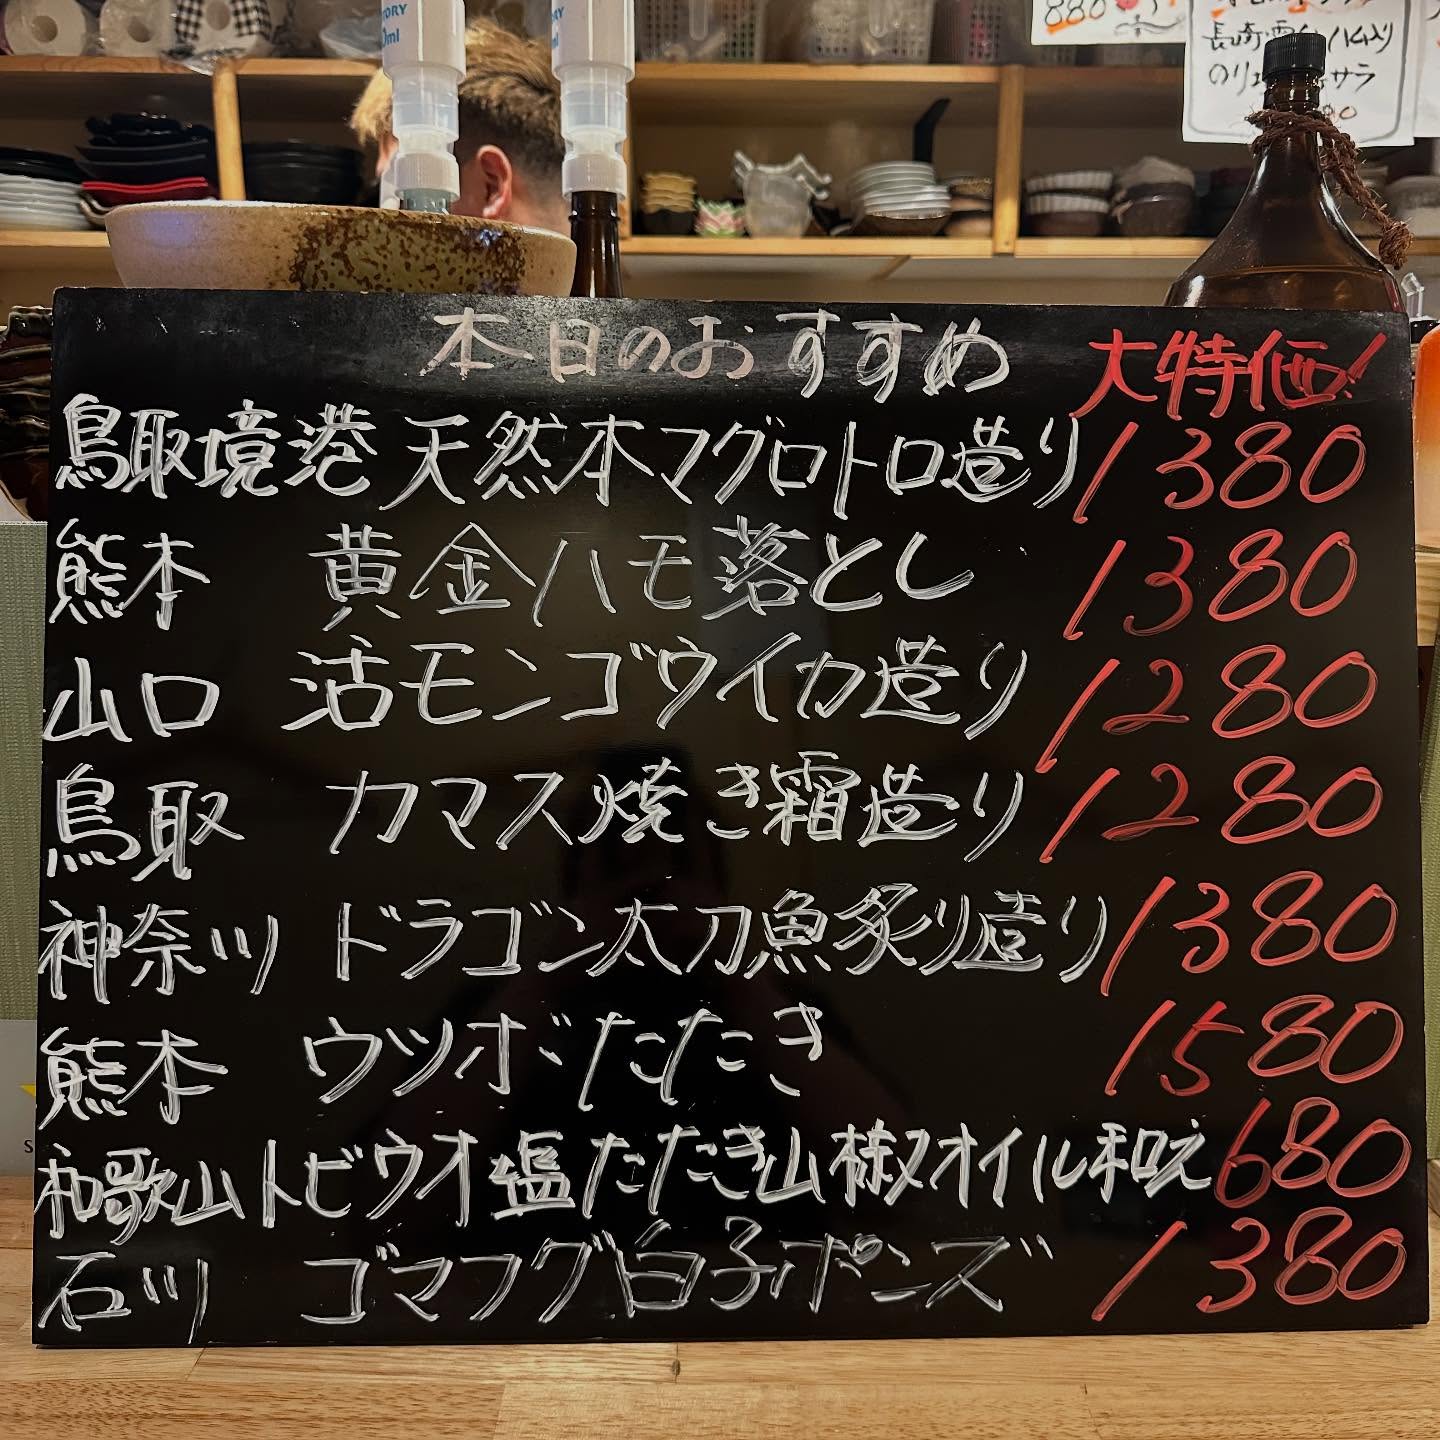 880
長崎雲仙ハム入り
本日のおすすめ 大特価!
鳥取境港 天然本マグロトロ造り 1380
熊本 黄金ハモ落とし 1380
山口 活モンゴウイカ造り 1280
鳥取 カマス焼き霜造り 1280
神奈川 ドラゴン太刀魚炙り造り 1380
熊本 ウツボたたき 1580
和歌山トビウオ塩たたき山椒オイル和え 680
石川 ゴマフグ白子ポンズ 1380